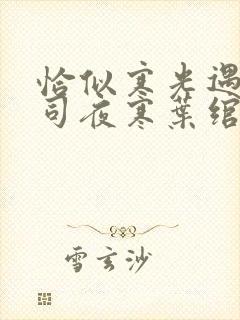 恰似寒光遇
司夜寒葉綰
雪玄沙